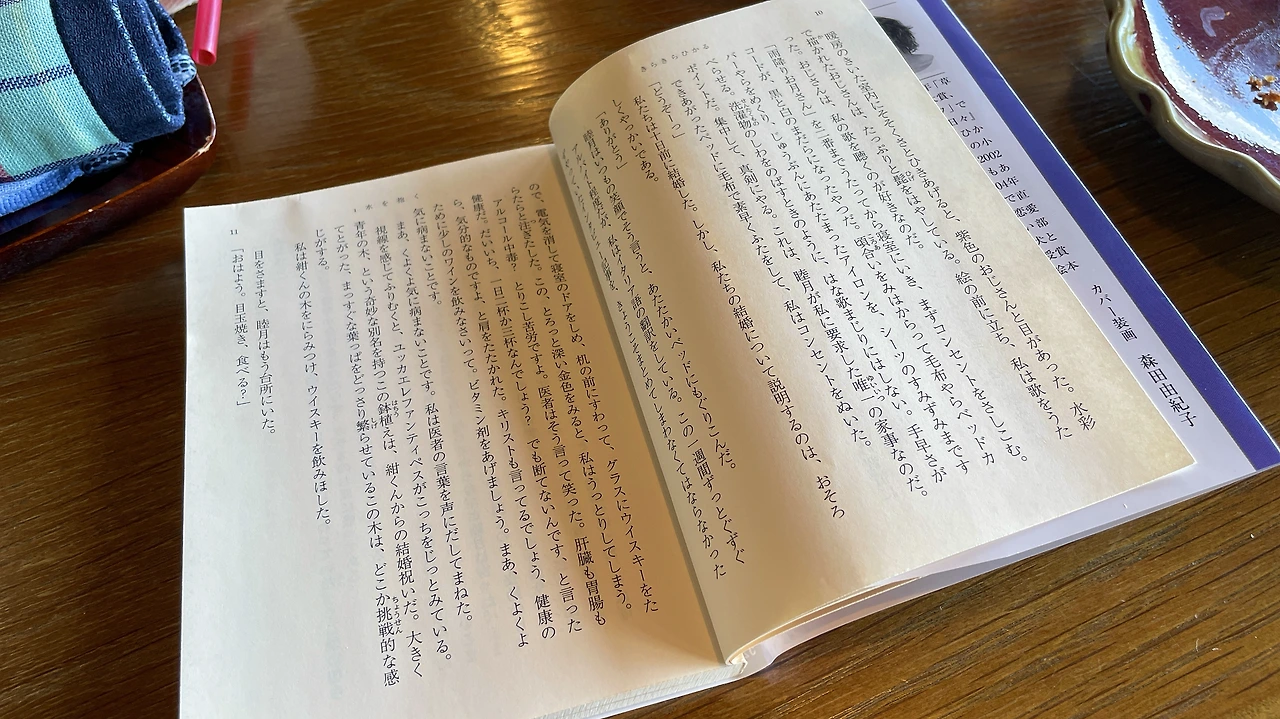 カバー装画 森田由紀子
10
きらきらひかる
暖房のきいた室内にそそくさとひきあげると、紫色のおじさんと目があった。水彩
で描かれたおじさんは、たっぷりと髭をはやしている。絵の前に立ち、私は歌をうた
った。おじさんは、私の歌を聴くのが好きなのだ。
「雨降りお月さん」を二番までうたってから寝室にいき、まずコンセントをさしこむ。
コードが、黒と白のまだらになったやつだ。頃合いをみはからって毛布やらベッドカ
バーやらをめくり、じゅうぶんにあたたまったアイロンを、シーツのすみずみまです
べらせる。洗濯物のしわをのばすときのように、はな歌まじりにはしない。手早さが
ポイントだ。集中して、真剣にやる。これは、睦月が私に要求した唯一の家事なのだ。
できあがったベッドに毛布で素早くふたをして、私はコンセントをぬいた。
「どうぞーっ」
私たちは十日前に結婚した。しかし、私たちの結婚について説明するのは、おそろ
しくやっかいである。
「ありがとう」
睦月はいつもの笑顔でそう言うと、あたたかいベッドにもぐりこんだ。
アルバイト程度だが、私はイタリア語の翻訳をしている。この一週間ずっとぐずぐ
きょうこそまとめてしまわなくてはならなかった
ので、電気を消して寝室のドアをしめ、机の前にすわって、グラスにウイスキーをた
らたらと注ぎたした。この、とろっと深い金色をみると、私はうっとりしてしまう。
アルコール中毒? とりこし苦労ですよ。医者はそう言って笑った。肝臓も胃腸も
健康だ。だいいち、一日二杯か三杯なんでしょう? でも断てないんです、と言った
ら、気分的なものですよ、と肩をたたかれた。キリストも言ってるでしょう、健康の
ために少しのワインを飲みなさいって。ビタミン剤をあげましょう。まあ、くよくよ
気に病まないことです。
まあ、くよくよ気に病まないことです。私は医者の言葉を声にだしてまねた。
視線を感じてふりむくと、ユッカエレファンティペスがこっちをじっとみている。
青年の木、という奇妙な別名を持つこの鉢植えは、紺くんからの結婚祝いだ。大きく
てとがった、まっすぐな葉っぱをどっさり繁らせているこの木は、どこか挑戦的な感
じがする。
私は紺くんの木をにらみつけ、ウイスキーを飲みほした。
目をさますと、睦月はもう台所にいた。
「おはよう。目玉焼き、食べる?」
11